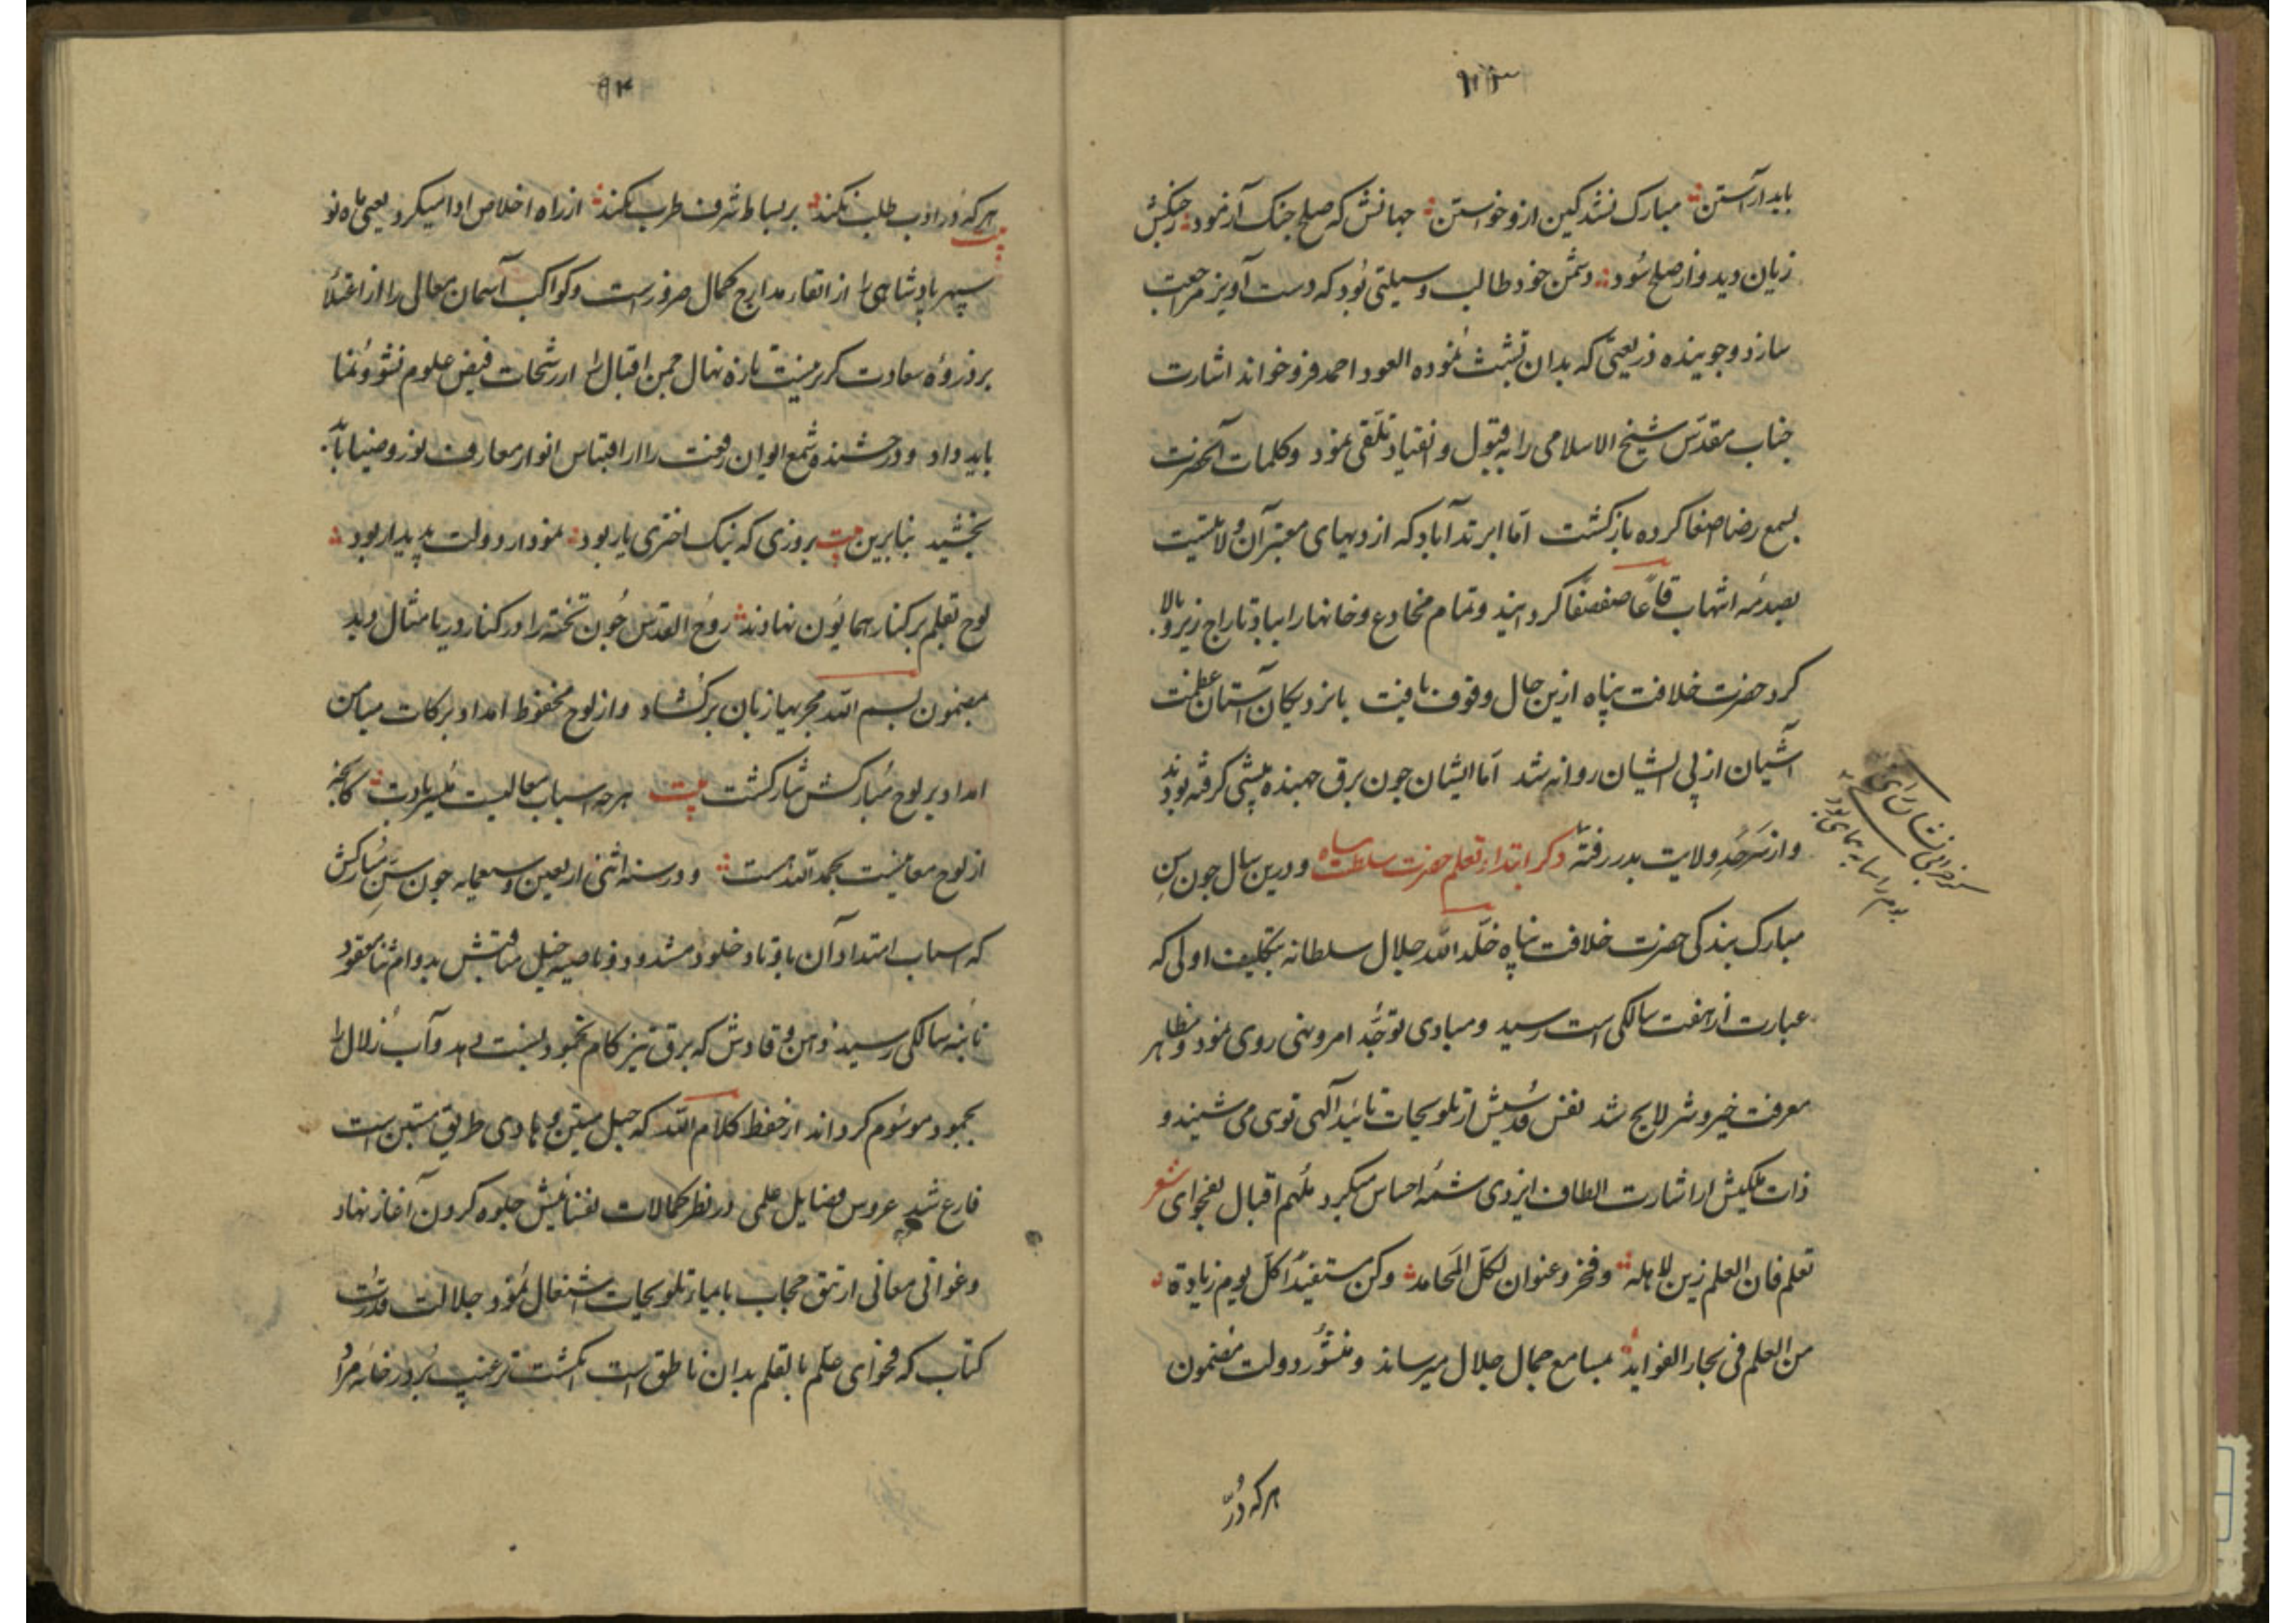 باید آراستن مبارک نشد کین ازو خواستن جهانش که صلح جنک آزمود ز جنکش
زیان دید و از صلح سود دشمن خود طالب وسیلتی بود که دست آویز مراجعت
سازد و جوینده ذریعتی که بدان تشبث نموده العود احمد فرو خواند اشارت
جناب مقدس شیخ الاسلامی را به قبول و انقیاد تلقی نمود و کلمات آنحضرت
بسمع رضا اصغا کرده باز کشت اما ابرندآباد که از دیهای معتبر آن ولایتست
بصدمه انتهاب قاعا صفصفا کردانیند و تمام مخادع و خانها را بباد تاراج زیر و بالا
کرد حضرت خلافت پناه ازین حال وقوف یافت با نزدیکان آستان عظمت
آشیان از پی ایشان روانه شد اما ایشان چون برق جهنده پیشی کرفته بودند
و از سرحد ولایت بدر رفته ذکر ابتداء تعلم حضرت سلطنت پناه و درین سال جون سن
مبارک بندکی حضرت خلافت پناه خلد الله جلال سلطانه بتکلیف اولی که
عبارت از هفت سالکی است رسید و مبادی توجه امر و نهی روی نمود و مظاهر
معرفت خیر و شر لایح شد نفس قدسیش از تلویحات تائید آلهی توی می شنید و
ذات ملکیش از اشارت الطاف ایزدی شمه احساس میکرد ملهم اقبال بفحوای شعر
تعلم فان العلم زین لاهله وفخر وعنوان لکل المحامد وکن مستفیدا کل یوم زیادة
من العلم فی بحار الفواید بمسامع جمال جلال میرساند و منشور دولت مضمون
هر که در
هر که در ادب طلب نکند بر بساط شرف طرب نکند از راه اخلاص ادا میکرد یعنی ماه نو
سپهر پادشاهی را از ارتقاء مدارج کمال ضرورست و کواکب آسمان معالی را از اعتلا
بر ذروه سعادت کریز نیست تازه نهال چمن اقبال را از رشحات فیض علوم نشو و نما
باید داد و درخشنده شمع ایوان رفعت را از اقتباس انوار معارف نور و ضیا باید
بخشید بنابرین بیت بروزی که نیک اختری یار بود نمودار دولت پدیدار بود
لوح تعلم بر کنار همایون نهادند روح القدس چون تخته را در کنار دریا مثال دید
بمضمون بسم الله مجریها زبان برکشاد و از لوح محفوظ امداد برکات میامن
امداد بر لوح مبارکش نثار کشت بیت هر چه اسباب معالیست میسر بادت کانچه
از لوح معانیست بحمد الله هست و در سنه اثنی اربعین و سبعمایه جون سن مبارکش
که اسباب امتداد آن باوتاد خلود مشدود و ناصیه خیل مناقبش بدوام ثنا معقود
تا بنه سالکی رسید ذهن وقادش که برق تیز کام بخمود نسبت دهد و آب زلال را
بجمود موسوم کرداند از حفظ کلام الله که حبل متین و هادی طریق مستبین است
فارغ شد عروس فضایل علمی در نظر کمالات نفسانیش جلوه کردن آغاز نهاد
و غوانی معانی از تتق حجاب بایماء تلویحات اشتغال نمود جلالت قدرت
کتاب که فحوای علم بالقلم بدان ناطق است انکشت ترغیب بر در خانه مراد